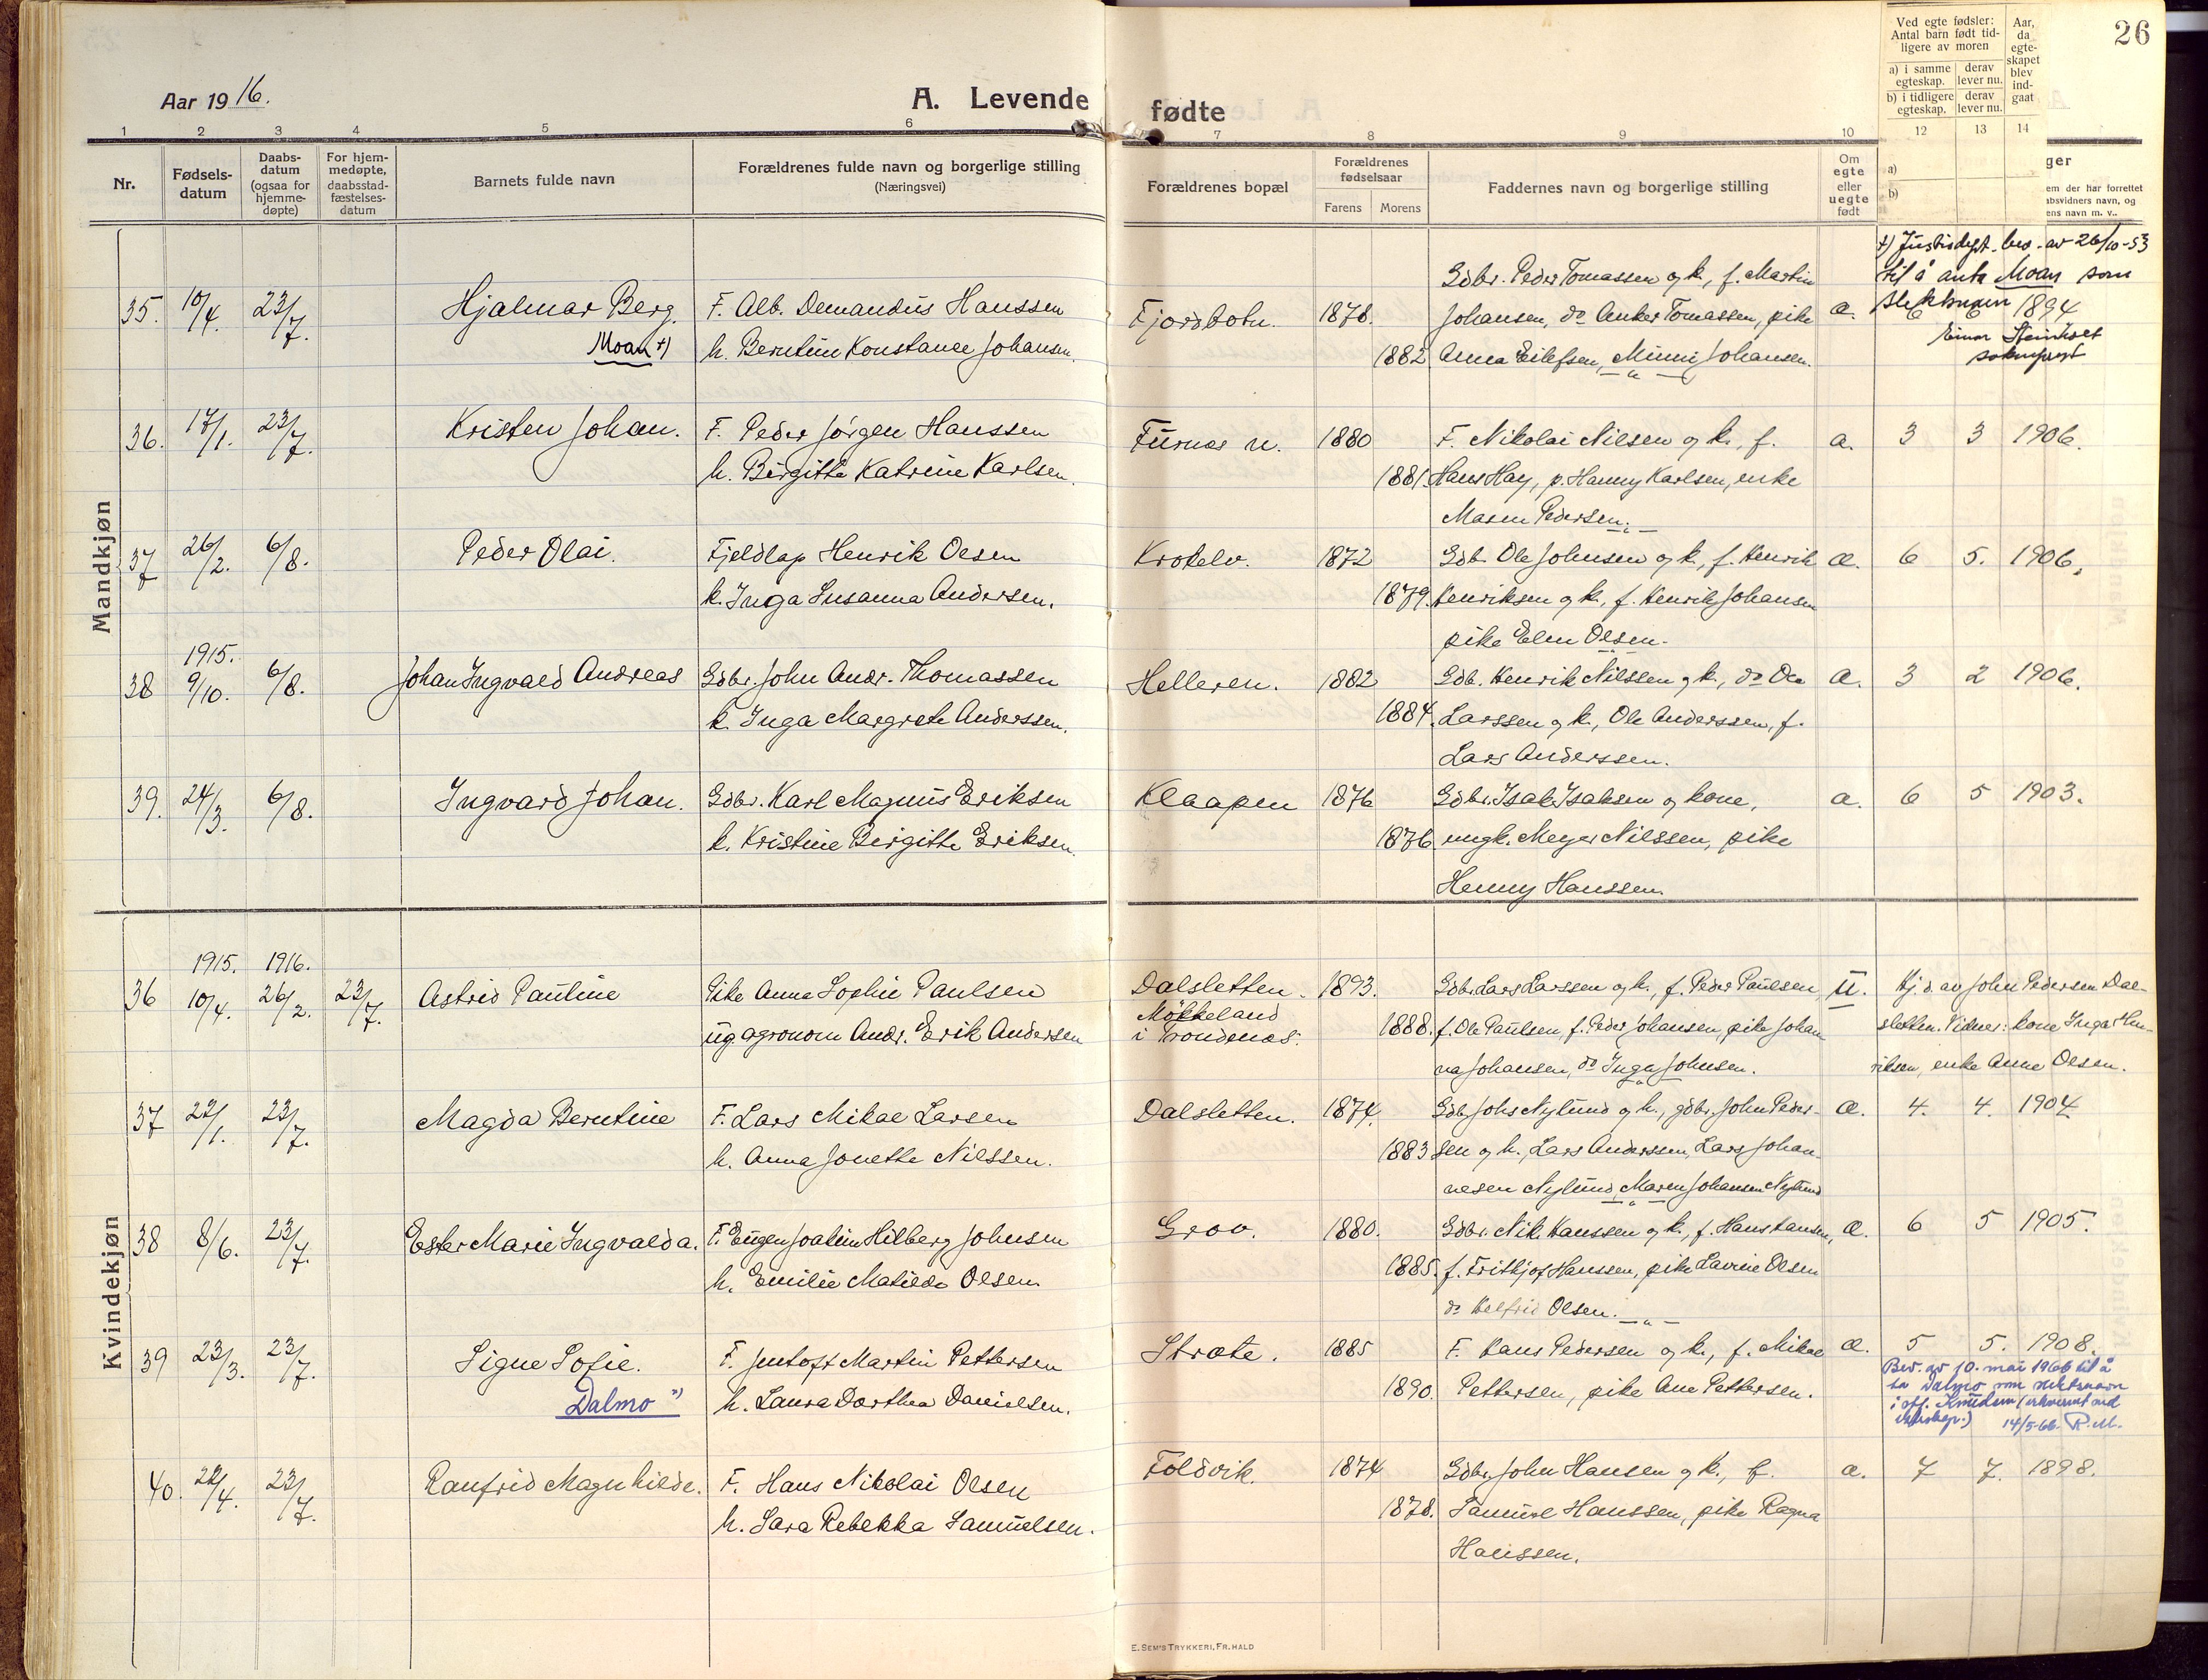 26
Aar 1916.
A. Levende fødte
Ved egte fødsler:
Antal barn født tid-
ligere av moren
a) i samme egteskap.
derav lever nu.
b) i tidligere egteskap.
derav lever nu.
Aar, da egte-skapet blev ind-gaat
1 2 3 4 5 6 7 8 9 10 12 13 14
Nr.
Fødsels-datum
Daabs-datum (ogsaa for hjemme-døpte)
For hjem-medøpte, daabsstad-fæstelses-datum
Barnets fulde navn
Forældrenes fulde navn og borgerlige stilling
(Næringsvei)
Forældrenes bopæl
Forældrenes fødselsaar
Farens Morens
Faddernes navn og borgerlige stilling
Om egte eller uegte født
a)
b)
ger
em der har forrettet
absvidners navn, og
ens navn m. v..
Mandkjøn
35. 10/4. 23/7. Hjalmar Berg. Moan +)
F. Alb. Demandus Hanssen
h. Berntine Konstance Johansen.
Fjordbotn. 1878. 1882
Gdbr. Peder Tomassen og k., f. Martin
Johansen, do Anker Tomassen, pike
Anna Eilefsen, Minni Johansen.
æ.
+) Justisdept. bev. av 26/10-53
til å anta Moan som
slektsnavn 1894
Einar
sokneprest
36. 17/1. 23/7. Kristen Johan.
F. Peder Jörgen Hanssen
h. Birgitte Katrine Karlsen.
Furnes n. 1880 1881.
F. Nikolai Nilsen og k., f.
Hans Hay, p. Hanny Karlsen, enke
Maren Pedersen.
æ. 3 3 1906.
37 26/2. 6/8. Peder Olai.
Fjeldlap Henrik Olsen
k. Inga Susanna Andersen.
Krokelv. 1872 1879.
Gdb. Ole Johnsen og k., f. Henrik
Henriksen og k., f. Henrik Johansen
pike Elen Olsen.
æ. 6 5. 1906.
38 1915. 9/10. 6/8. Johan Ingvald Andreas
Gdbr. John Andr. Thomassen
k. Inga Margrete Anderssen.
Helleren. 1882 1884.
Gdb. Henrik Nilssen og k., do Ole
Larssen og k., Ole Anderssen, f.
Lars Anderssen.
æ. 3 2 1906.
39. 24/3. 6/8. Ingvard Johan.
Gdbr. Karl Magnus Eriksen
k. Kristine Birgitte Eriksen.
Klaapen 1876 1876
Gdbr. Isak Isaksen og kone,
ungk. Meyer Nilssen, pike
Henny Hanssen.
æ. 6 5 1903.
Kvindekjøn
36 1915. 10/4. 1916. 26/2. 23/7. Astrid Pauline
Pike Anna Sophie Paulsen
ug agronom Andr. Erik Andersen
Dalsletten. Mökkeland i Trondenes. 1893. 1888.
Gdbr. Lars Larssen og k., f. Peder Paulsen,
f. Ole Paulsen, f. Peder Johansen, pike Johan
na Johansen, do Inga Johnsen.
u.
Hj. d. av John Pedersen Dal-
sletten. Vidner: kone Inga Hen-
riksen, enke Anne Olsen.
37 22/1. 23/7. Magda Berntine
F. Lars Mikal Larsen
h. Anna Jonette Nilssen.
Dalsletten. 1874. 1883
Gdb. Johs Nylund og h., gdbr. John Peder-
sen og h., Lars Anderssen, Lars Johan-
nesen Nylund, Maren Johansen Nylund
æ. 4. 4. 1904
38 8/6. 23/7. Ester Marie Ingvalda.
F. Eugen Joakim Hilberg Johnsen
h. Emilie Matilde Olsen
Grov. 1880. 1885.
Gdbr. Nik. Hanssen og k., f. Hans Hansen,
f. Fritkjof Hanssen, pike Lavine Olsen
do Helfrid Olsen.
æ. 6 5 1905.
39 23/3. 23/7. Signe Sofie. Dalmo ")
F. Jentoft Martin Pettersen
h. Laura Dorthea Danielsen.
Stræte. 1885 1890.
F. Hans Pedersen og k., f. Mikal
Pettersen, pike Ane Pettersen.
æ. 5 5. 1908.
Bev. av 10. mai 1966 til å
ta Dalmo som slektsnavn
i stf. Knudsen (erhvervet ved
ekteskap.) 14/5-66. R.M.
40. 22/4. 23/7. Ranfrid Magnhilde.
F. Hans Nikolai Olsen
h. Sara Rebekka Samuelsen.
Foldvik. 1874 1878.
Gdbr. John Hansen og k., f.
Samuel Hanssen, pike Ragna
Hanssen.
æ. 7 7. 1898.
E. SEM'S TRYKKERI, FR. HALD